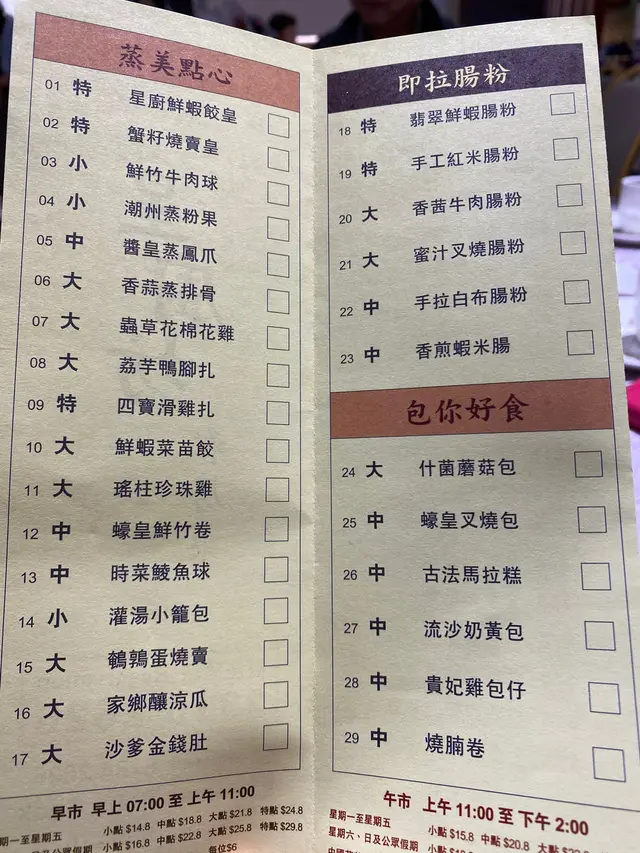 蒸美點心
01 特 星廚鮮蝦餃皇
02 特 蟹籽燒賣皇
03 小 鮮竹牛肉球
04 小 潮州蒸粉果
05 中 醬皇蒸鳳爪
06 大 香蒜蒸排骨
07 大 蟲草花棉花雞
08 大 荔芋鴨腳扎
09 特 四寶滑雞扎
10 大 鮮蝦菜苗餃
11 大 瑤柱珍珠雞
12 中 蠔皇鮮竹卷
13 中 時菜鯪魚球
14 小 灌湯小籠包
15 大 鵪鶉蛋燒賣
16 大 家鄉釀涼瓜
17 大 沙爹金錢肚
早市 早上 07:00 至 上午 11:00
星期一至星期五 小點 $14.8 中點 $18.8 大點 $21.8 特點 $24.8
及公眾假期 小點 $16.8 中點 $22.8 大點 $25.8 特點 $29.8
每位$6
即拉腸粉
18 特 翡翠鮮蝦腸粉
19 特 手工紅米腸粉
20 大 香茜牛肉腸粉
21 大 蜜汁叉燒腸粉
22 中 手拉白布腸粉
23 中 香煎蝦米腸
包你好食
24 大 什菌蘑菇包
25 中 蠔皇叉燒包
26 中 古法馬拉糕
27 中 流沙奶黃包
28 中 貴妃雞包仔
29 中 燒腩卷
午市 上午 11:00 至 下午 2:00
星期一至星期五 小點 $15.8 中點 $20.8
星期六、日及公眾假期